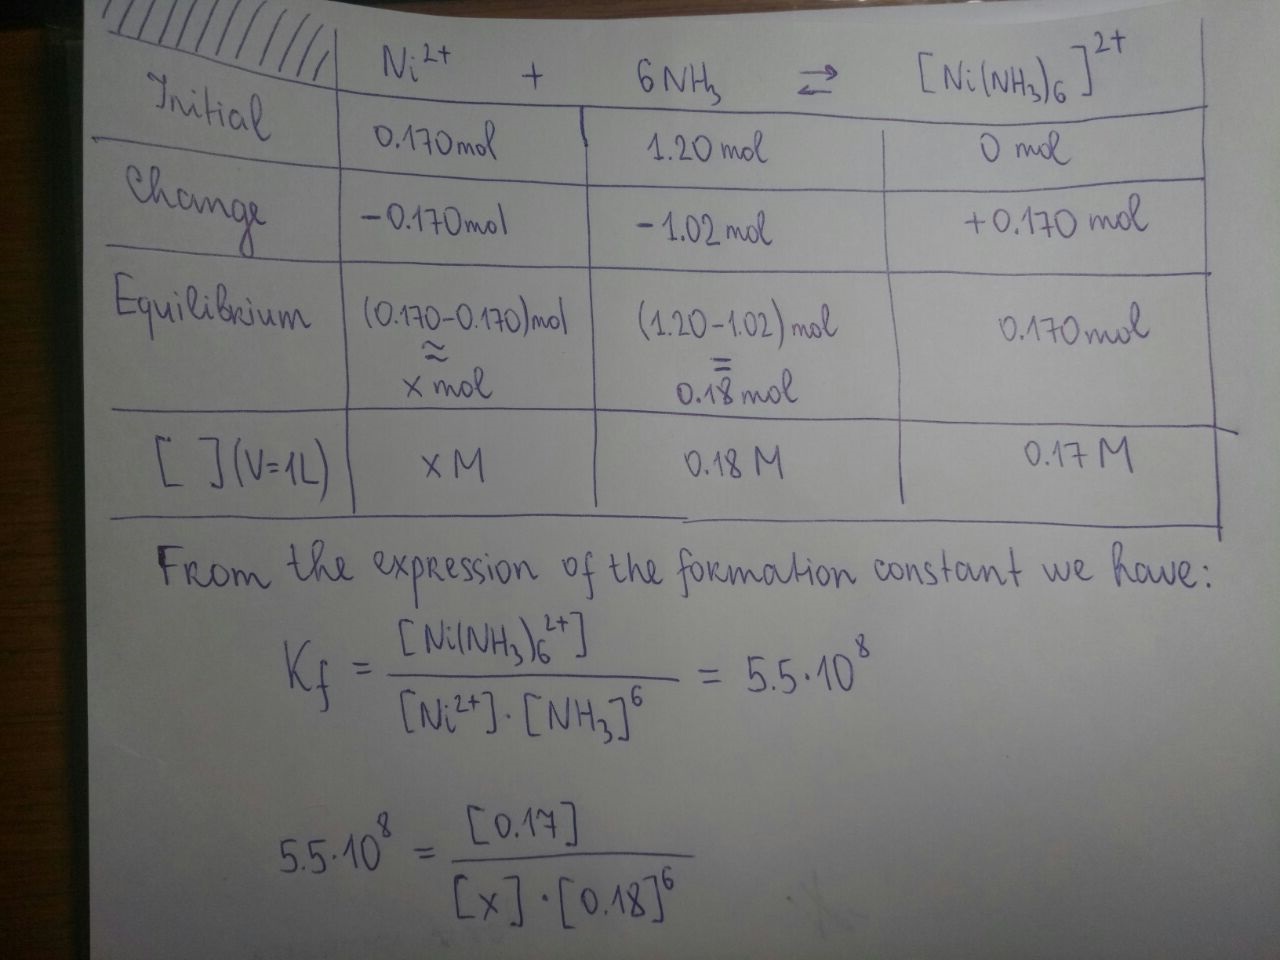 Ni²⁺ + 6NH₃ ⇌ [Ni(NH₃)₆]²⁺
Initial 0.170mol 1.20mol 0 mol
Change -0.170mol -1.02mol +0.170mol
Equilibrium (0.170-0.170)mol (1.20-1.02)mol 0.170mol
≈ =
x mol 0.18mol
[ ](V=1L) x M 0.18 M 0.17 M
From the expression of the formation constant we have:
Kf = [Ni(NH₃)₆²⁺] / [Ni²⁺]·[NH₃]⁶ = 5.5·10⁸
5.5·10⁸ = [0.17] / [x]·[0.18]⁶